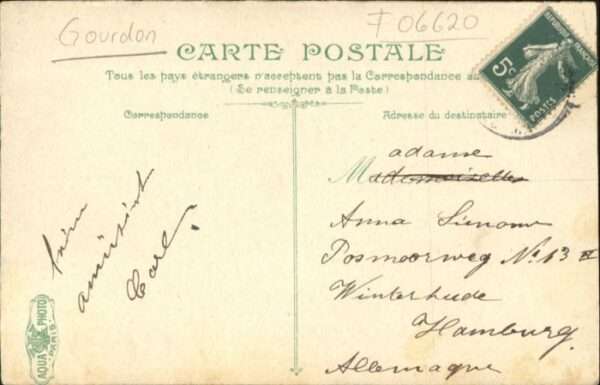 Gourdon
F 06620
CARTE POSTALE
Tous les pays étrangers n'acceptent pas la Correspondance au
(Se renseigner à la Poste)
Correspondance
Adresse du destinataire
RÉPUBLIQUE FRANÇAISE
5c
POSTES
adame
Mademoiselle
Anna
Posmoorweg No 13 II
Winterhude
Hamburg.
Allemagne
amüsirt
Carl.
AQUA PHOTO
PARIS